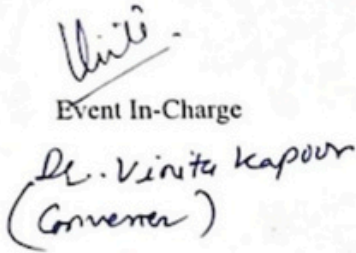 Vinita
Event In-Charge
Dr. Vinita Kapoor
(Convener)